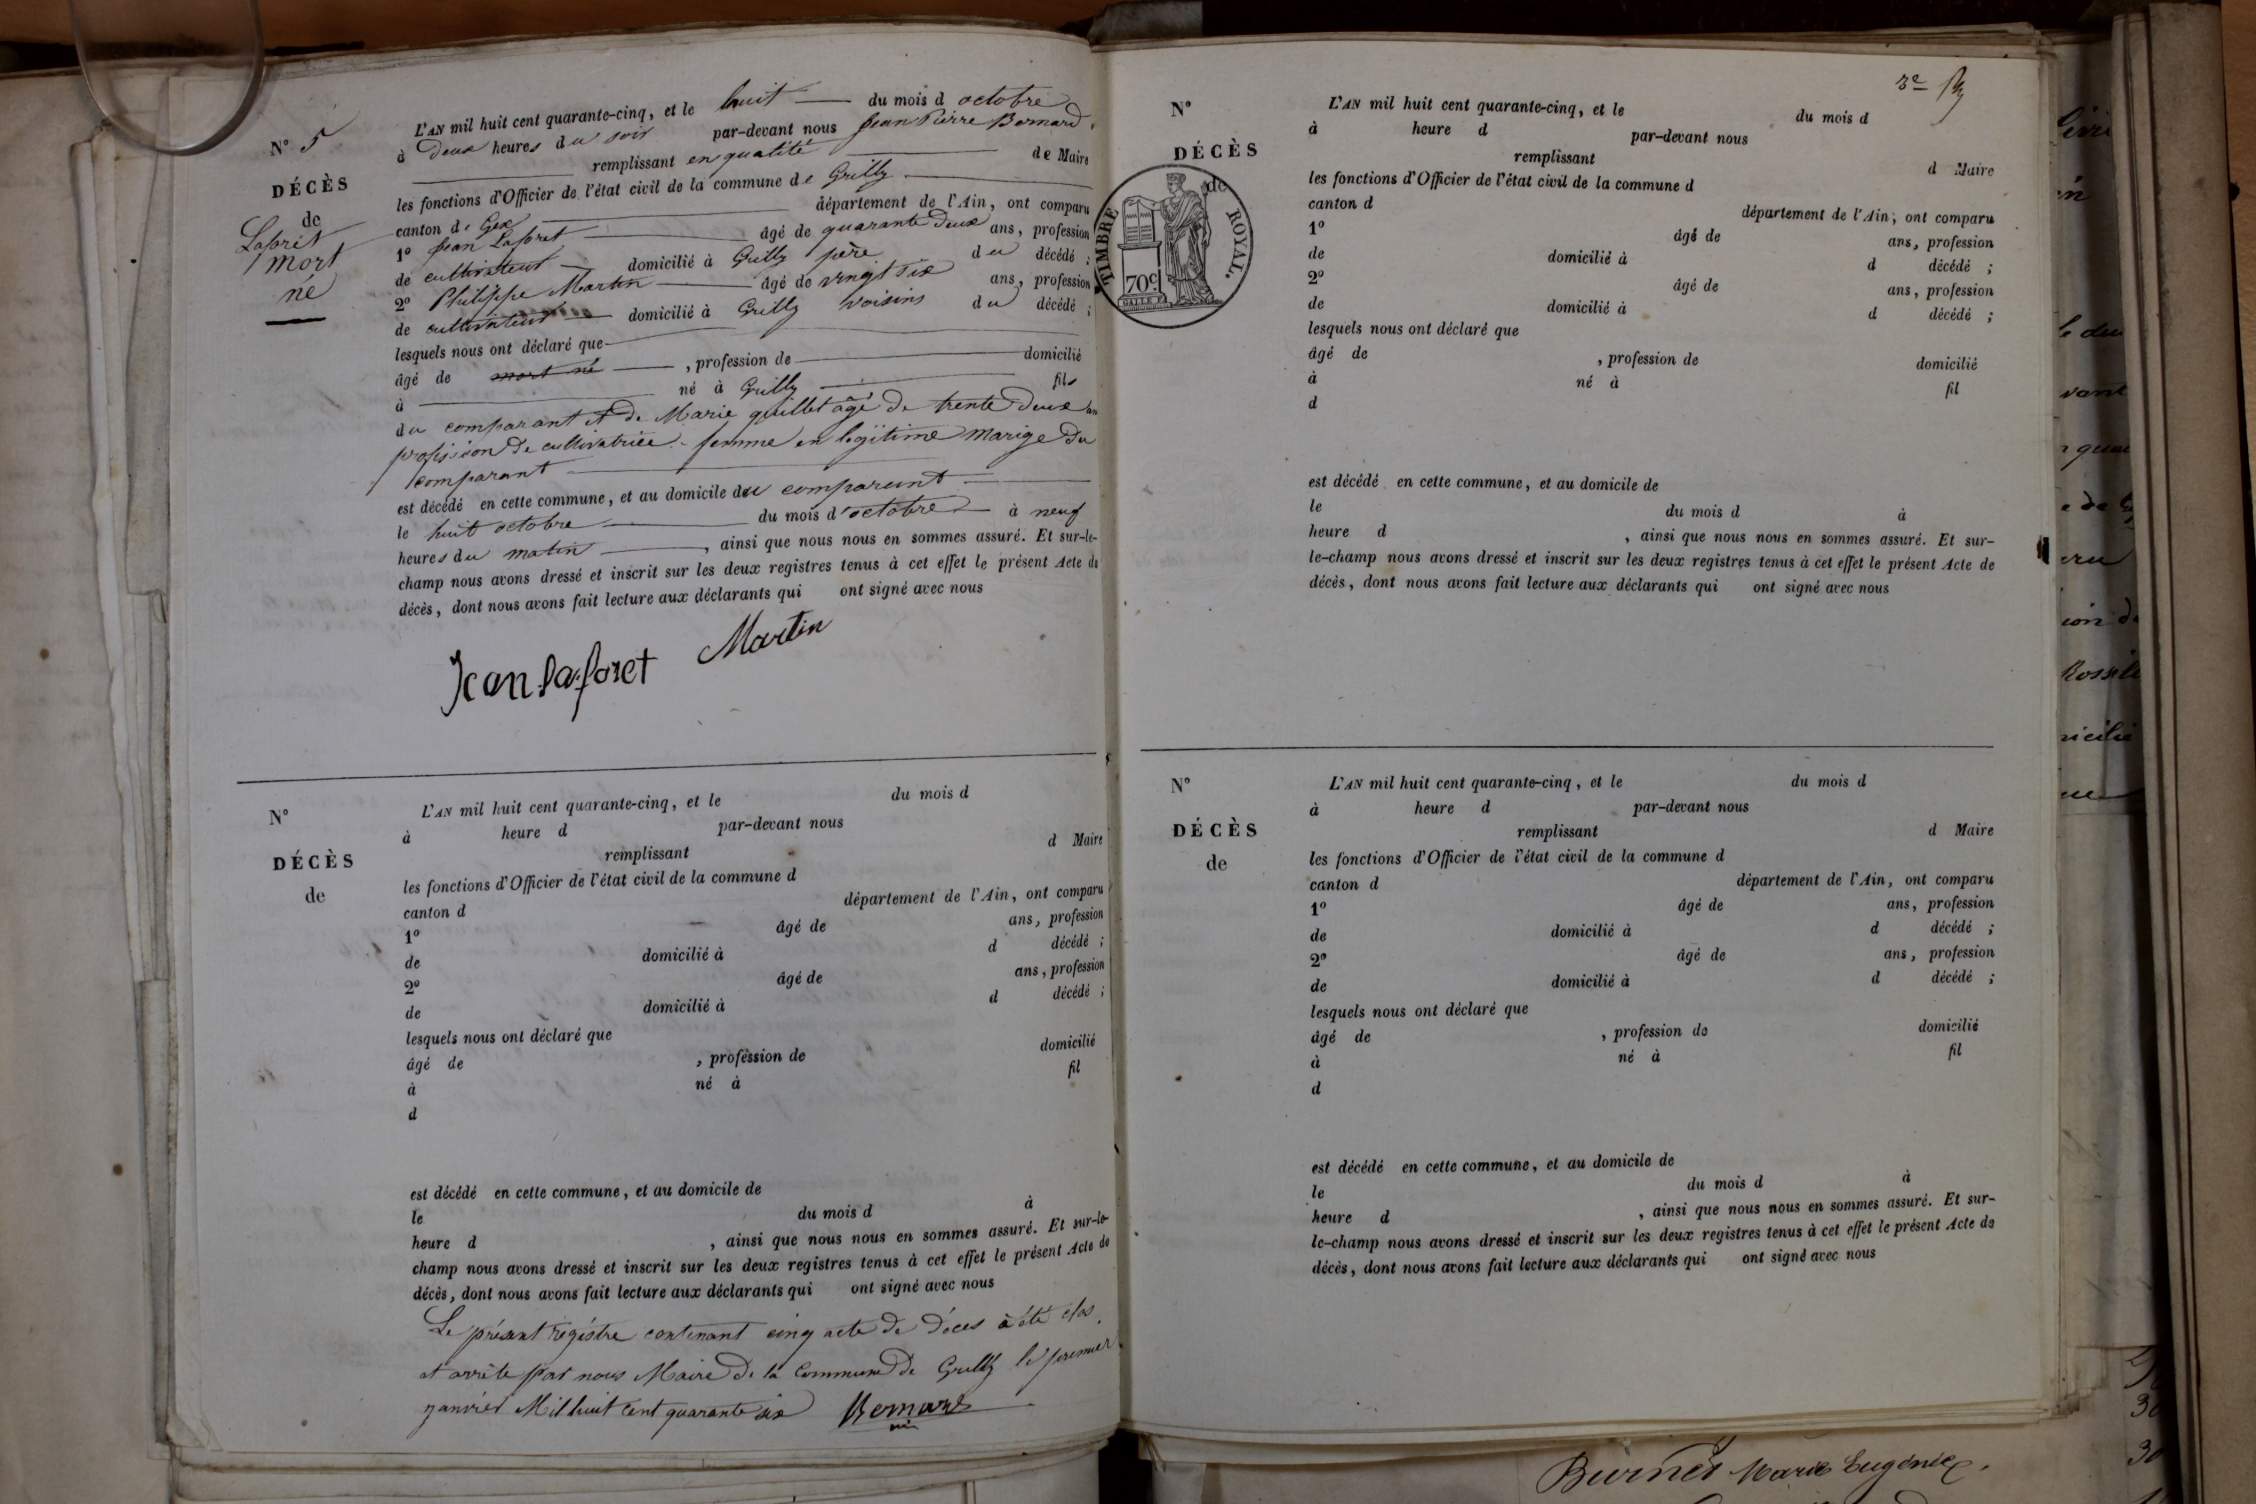 N° 5
DÉCÈS
de
Laforêt
mort
né
L'AN mil huit cent quarante-cinq, et le huit du mois d octobre
à Deux heures du soir par-devant nous Jean Pierre Bernard,
remplissant en qualité de Maire
les fonctions d'Officier de l'état civil de la commune de Grilly
canton de Gex département de l'Ain, ont comparu
1° Jean Laforet âgé de quarante Deux ans, profession
de cultivateur domicilié à Grilly père du décédé ;
2° Philippe Martin âgé de vingt six ans, profession
de cultivateur domicilié à Grilly voisins du décédé ;
lesquels nous ont déclaré que
âgé de mort né , profession de domicilié
à né à Grilly fils
du comparant et de Marie quillet âgé de trente deux ans
profission de cultivatrice femme en legitime marige du
comparant
est décédé en cette commune, et au domicile du comparant
le huit octobre du mois d'octobre à neuf
heures du matin , ainsi que nous nous en sommes assuré. Et sur-le-
champ nous avons dressé et inscrit sur les deux registres tenus à cet effet le présent Acte de
décès, dont nous avons fait lecture aux déclarants qui ont signé avec nous
Jean laforet Martin
N°
DÉCÈS
de
L'AN mil huit cent quarante-cinq, et le du mois d
à heure d par-devant nous
remplissant d Maire
les fonctions d'Officier de l'état civil de la commune d
canton d département de l'Ain, ont comparu
1° âgé de ans, profession
de domicilié à d décédé ;
2° âgé de ans, profession
de domicilié à d décédé ;
lesquels nous ont déclaré que
âgé de , profession de domicilié
à né à fil
d
est décédé en cette commune, et au domicile de
le du mois d à
heure d , ainsi que nous nous en sommes assuré. Et sur-le-
champ nous avons dressé et inscrit sur les deux registres tenus à cet effet le présent Acte de
décès, dont nous avons fait lecture aux déclarants qui ont signé avec nous
Le présent régistre contenant cinq acte de déces à été clos
et arrêté par nous Maire de la Commune de Grilly le premier
janvier Mil huit cent quarante six Bernard
N°
DÉCÈS
de
TIMBRE ROYAL.
70c
L'AN mil huit cent quarante-cinq, et le du mois d
à heure d par-devant nous
remplissant d Maire
les fonctions d'Officier de l'état civil de la commune d
canton d département de l'Ain, ont comparu
1° âgé de ans, profession
de domicilié à d décédé ;
2° âgé de ans, profession
de domicilié à d décédé ;
lesquels nous ont déclaré que
âgé de , profession de domicilié
à né à fil
d
est décédé en cette commune, et au domicile de
le du mois d à
heure d , ainsi que nous nous en sommes assuré. Et sur-
le-champ nous avons dressé et inscrit sur les deux registres tenus à cet effet le présent Acte de
décès, dont nous avons fait lecture aux déclarants qui ont signé avec nous
N°
DÉCÈS
de
L'AN mil huit cent quarante-cinq, et le du mois d
à heure d par-devant nous
remplissant d Maire
les fonctions d'Officier de l'état civil de la commune d
canton d département de l'Ain, ont comparu
1° âgé de ans, profession
de domicilié à d décédé ;
2° âgé de ans, profession
de domicilié à d décédé ;
lesquels nous ont déclaré que
âgé de , profession de domicilié
à né à fil
d
est décédé en cette commune, et au domicile de
le du mois d à
heure d , ainsi que nous nous en sommes assuré. Et sur-
le-champ nous avons dressé et inscrit sur les deux registres tenus à cet effet le présent Acte de
décès, dont nous avons fait lecture aux déclarants qui ont signé avec nous
Marie Eugénie